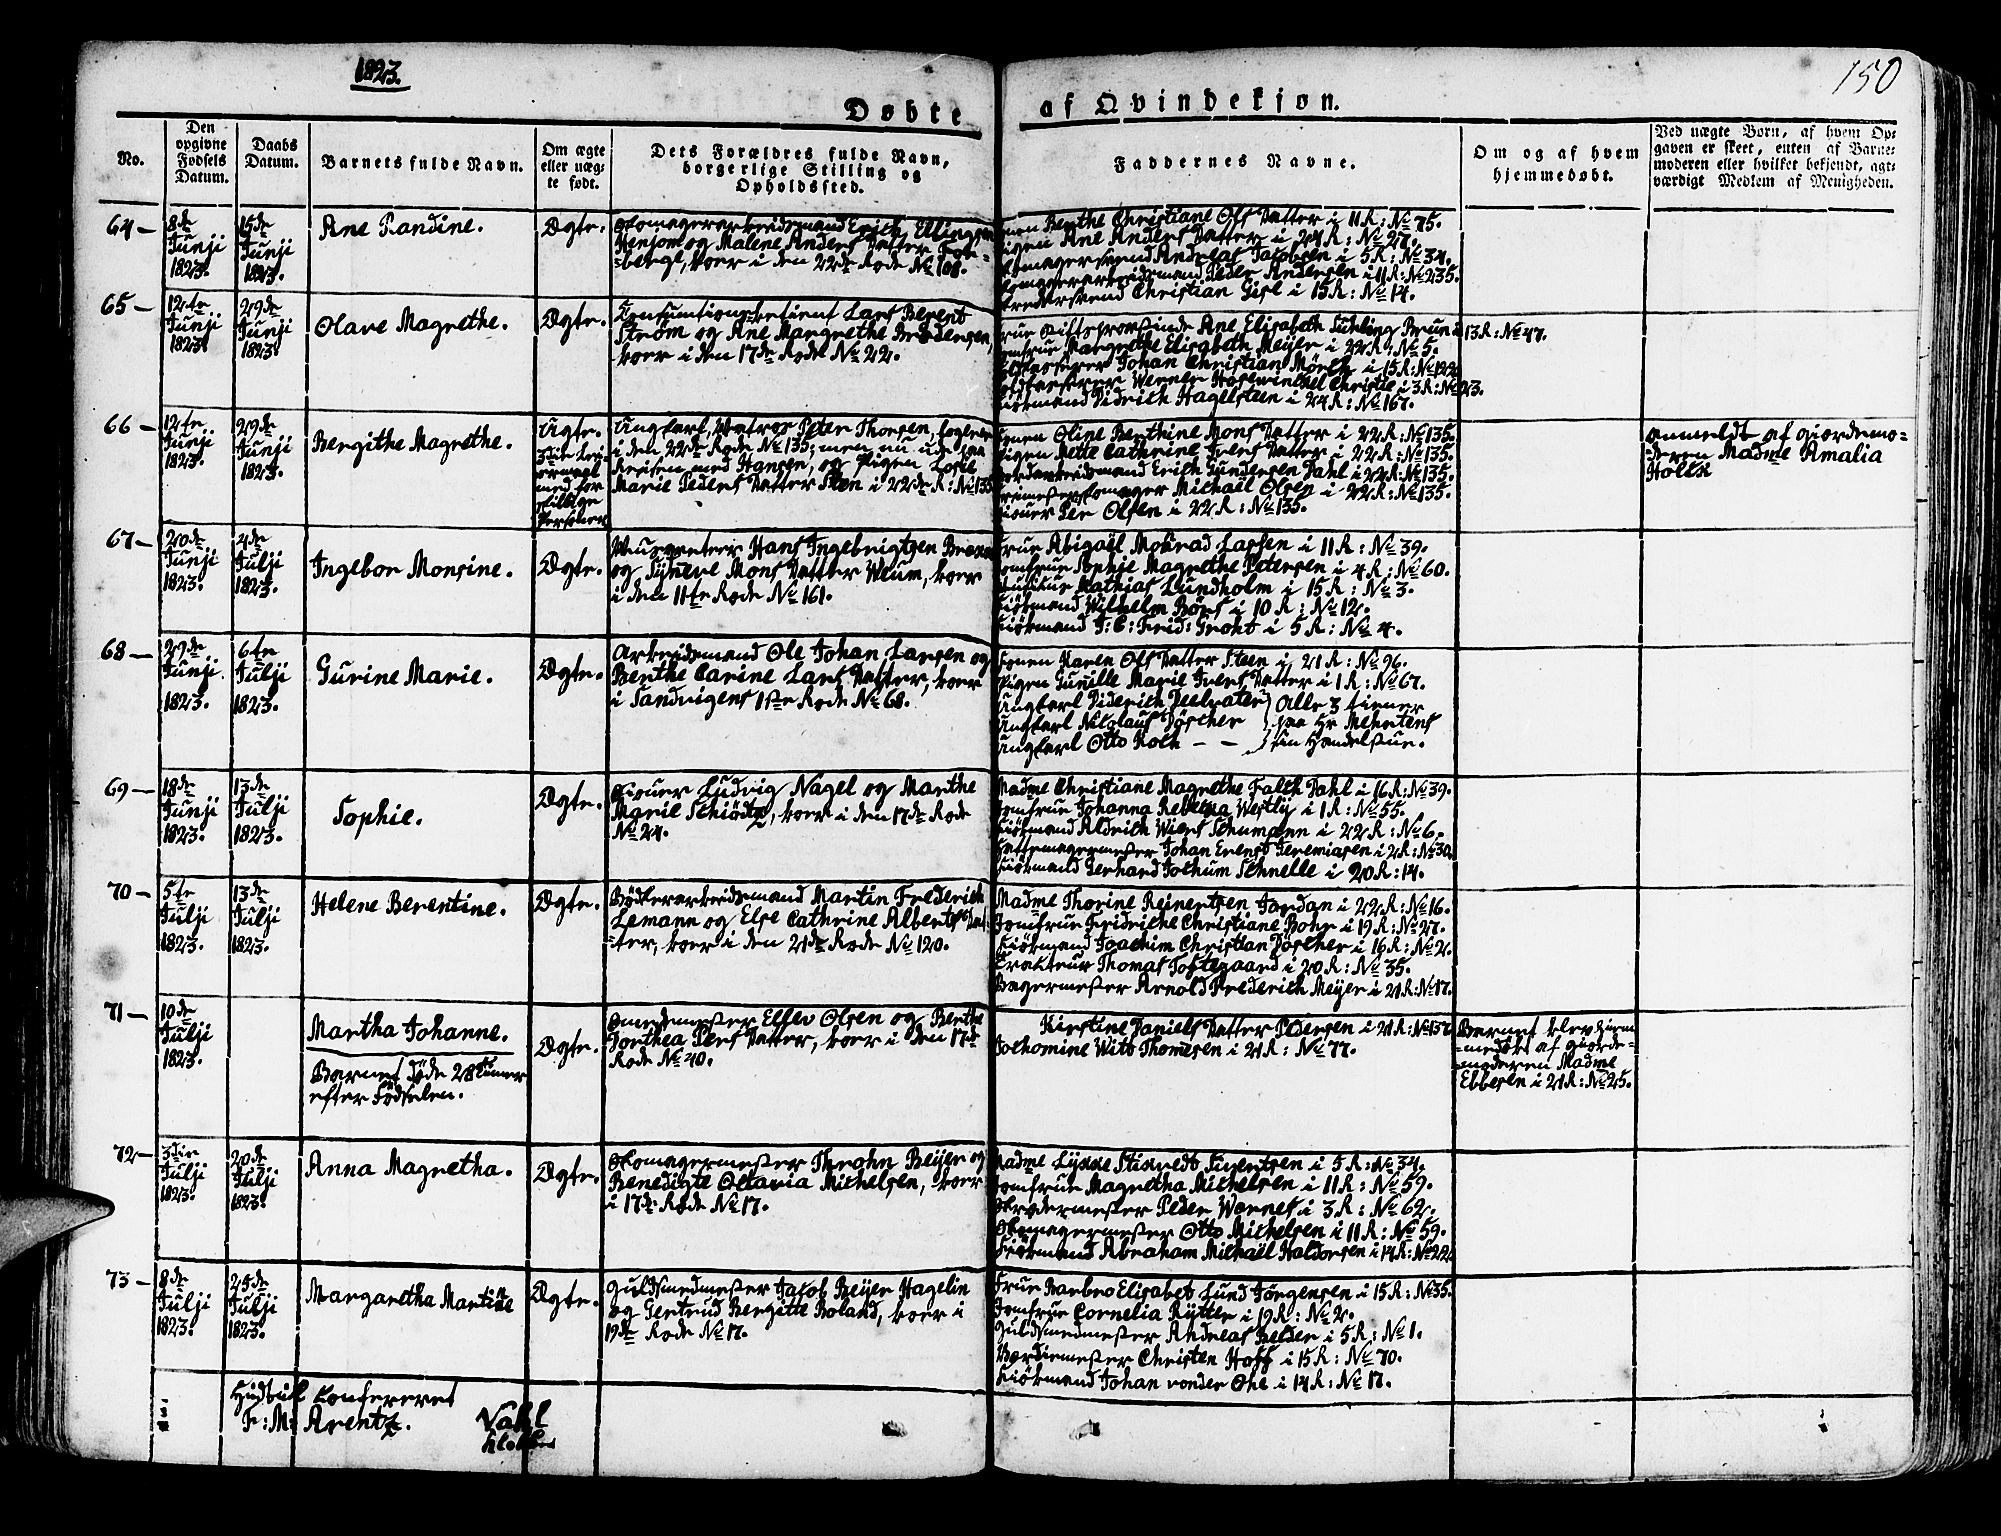 1823.
150
Döbte af Qvindekjøn.
No.
Den opgivne Fødsels Datum.
Daabs Datum.
Barnets fulde Navn.
Om ægte eller uægte født.
Dets Forældres fulde Navn, borgerlige Stilling og Opholdssted.
Faddernes Navne.
Om og af hvem hjemmedøbt.
Ved uægte Børn, af hvem Opgaven er skeet, enten af Barnemoderen eller hvilket bekjendt, agtværdigt Medlem af Menigheden.
64 –
8de Junji 1823.
15de Junji 1823.
Ane Randine.
Ægte.
Skomagerarbeidsmand Erich Ellingsen
Henjom og Malene Anders Datter
boer i den 22de Rode No 108.
Konen Berthe Christiane Ols Datter i 11 R: No 75.
Pigen Ane Anders Datter i 24 R: No 27.
Skomagersvend Andreas Jacobsen i 5 R: No 34.
Skomagerarbeidsmand Peder Andersen i 11 R: No 235.
Christian Gisl i 15 R: No 14.
65 –
12te Junji 1823.
29de Junji 1823.
Olave Magrethe.
Ægte.
Consumtionsbetient Lars Berent
Strøm og Ane Margrethe Brødersen,
boer i den 17de Rode No 22.
Frue Ane Elisabeth Sühling Brun i 13 R: No 47.
Jomfrue Margrethe Elisabeth Meyer i 22 R: No 5.
Johan Christian Mörch i 15 R: No 122
Werner Hosewinckel Christie i 3 R: No 23.
Kiöbmand Didrich Hagelsteen i 24 R: No 167.
66 –
12te Junji 1823.
29de Junji 1823.
Bergithe Magrethe.
Uægte.
3die Leiermaal
med for
skillige
Personer
Ungkarl, Matros Peter Thorsen, logerer
i den 22de Rode No 135; men nu ude paa
Reisen med Hansen, og Pigen Losie
Marie Peders Datter Sten i 22de R: No 135
Konen Oline Berthine Mons Datter i 22 R: No 135.
Pigen Mette Cathrine Ivers Datter i 22 R: No 135.
Erich Gundersen Dahl i 22 R: No 135.
Michaël Olsen i 22 R: No 135.
Per Olsen i 22 R: No 135.
anmeldt af Giordemo-
deren Madme Amalia
Holck
67 –
20de Junji 1823.
4de Julji 1823.
Ingebor Monsine.
Ægte.
Hans Ingebrigtsen
og Synneve Mons Datter Weum, boer
i den 11te Rode No 161.
Frue Abigaël Mohrad Lassen i 11 R: No 39.
Jomfrue Sophje Magrethe Petersen i 4 R: No 60.
Mathias Lundholm i 15 R: No 3.
Kiöbmand Wilhelm Börs i 10 R: No 12.
Kiöbmand J: C: Frid: Groht i 5 R: No 4.
68 –
29de Junji 1823.
6te Julji 1823.
Gurine Marie.
Ægte.
Arbeidsmand Ole Johan Larsen og
Berthe Carine Lars Datter, boer
i Sandvigens 1ste Rode No 68.
Konen Karen Ols Datter Steen i 21 R: No 96.
Pigen Gunille Marie Ivers Datter i 1 R: No 67.
Ungkarl Diderich
Ungkarl Nicolaus Döscher
Ungkarl Otto Koch – –
Alle 3 tiener
paa Hr Mehrtens
sin Handelstue.
69 –
18de Junji 1823.
13de Julji 1823.
Sophie.
Ægte.
Ludvig Nagel og Marthe
Marie Schiödtz, boer i den 17de Rode
No 24.
Madme Christiane Magrethe Falch Dahl i 16 R: No 39.
Jomfrue Johanna Rebecka Westly i 1 R: No 55.
Kiöbmand Aldrich Wiers Schumann i 22 R: No 6.
Hattemagermester Johan Ernst Jeremiasen i 2 R: No 30.
Kiöbmand Gerhard Jochum Schnelle i 20 R: 14.
70 –
5te Julji 1823.
13de Julji 1823.
Helene Berentine.
Ægte.
Bödkerarbeidsmand Martin Frederich
Lemann og Else Cathrine Alberts Dat-
ter, boer i den 21de Rode No 120.
Madme Thorine Reinertsen Jordan i 22 R: No 16.
Jomfrue Fridriche Christiane Bohr i 19 R: No 27.
Kiöbmand Joachim Christian Döscher i 16 R: No 2.
Thomas Toftegaard i 20 R: No 35.
Bagermester Arnold Frederich Meyer i 21 R: No 17.
71 –
10de Julji 1823.
Martha Johanne.
Barnet döde 28 Timer
efter Födselen.
Ægte.
Smedemester Ellev Olsen og Berthe
Dorthea Pers Datter, boer i den 17de
Rode No 40.
Kirstine Daniels Datter Petersen i 21 R: No 137
Jochomine Witt Thomesen i 21 R: No 77.
Barnet blev hjem-
medöbt af Giorde-
moderen Madme
Ebbesen i 21 R: No 25.
72 –
3die Julji 1823.
20de Julji 1823.
Anna Magretha.
Ægte.
Skomagermester Throhn Beijer og
Benedicte Octavia Michelsen, boer
i 17de Rode No 17.
Madme Lykke Sivertsen i 5 R: No 34.
Jomfrue Magretha Michelsen i 11 R: No 59.
Skredermester Peder Warnes i 3 R: No 62.
Skomagermester Otto Michelsen i 11 R: No 59.
Kiöbmand Abraham Michaël Haldorsen i 14 R: No 22
73 –
8de Julji 1823.
25de Julji 1823.
Margaretha Martine
Ægte.
Guldsmedmester Jacob Beijer Hagelin
og Gertrud Bergitte Roland, boer i
19de Rode No 17.
Frue Barbro Elisabet Lund Jörgensen i 15 R: No 35.
Jomfrue Cornelia Rytter i 19 R: No 2.
Guldsmedmester Andreas Belder i 5 R: No 1.
Christen Hoff i 15 R: No 70.
Kiöbmand Johan vonder Ohe i 14 R: No 17.
Hidtil Confereret
F: M: Arentz.
Vahl
Klokker